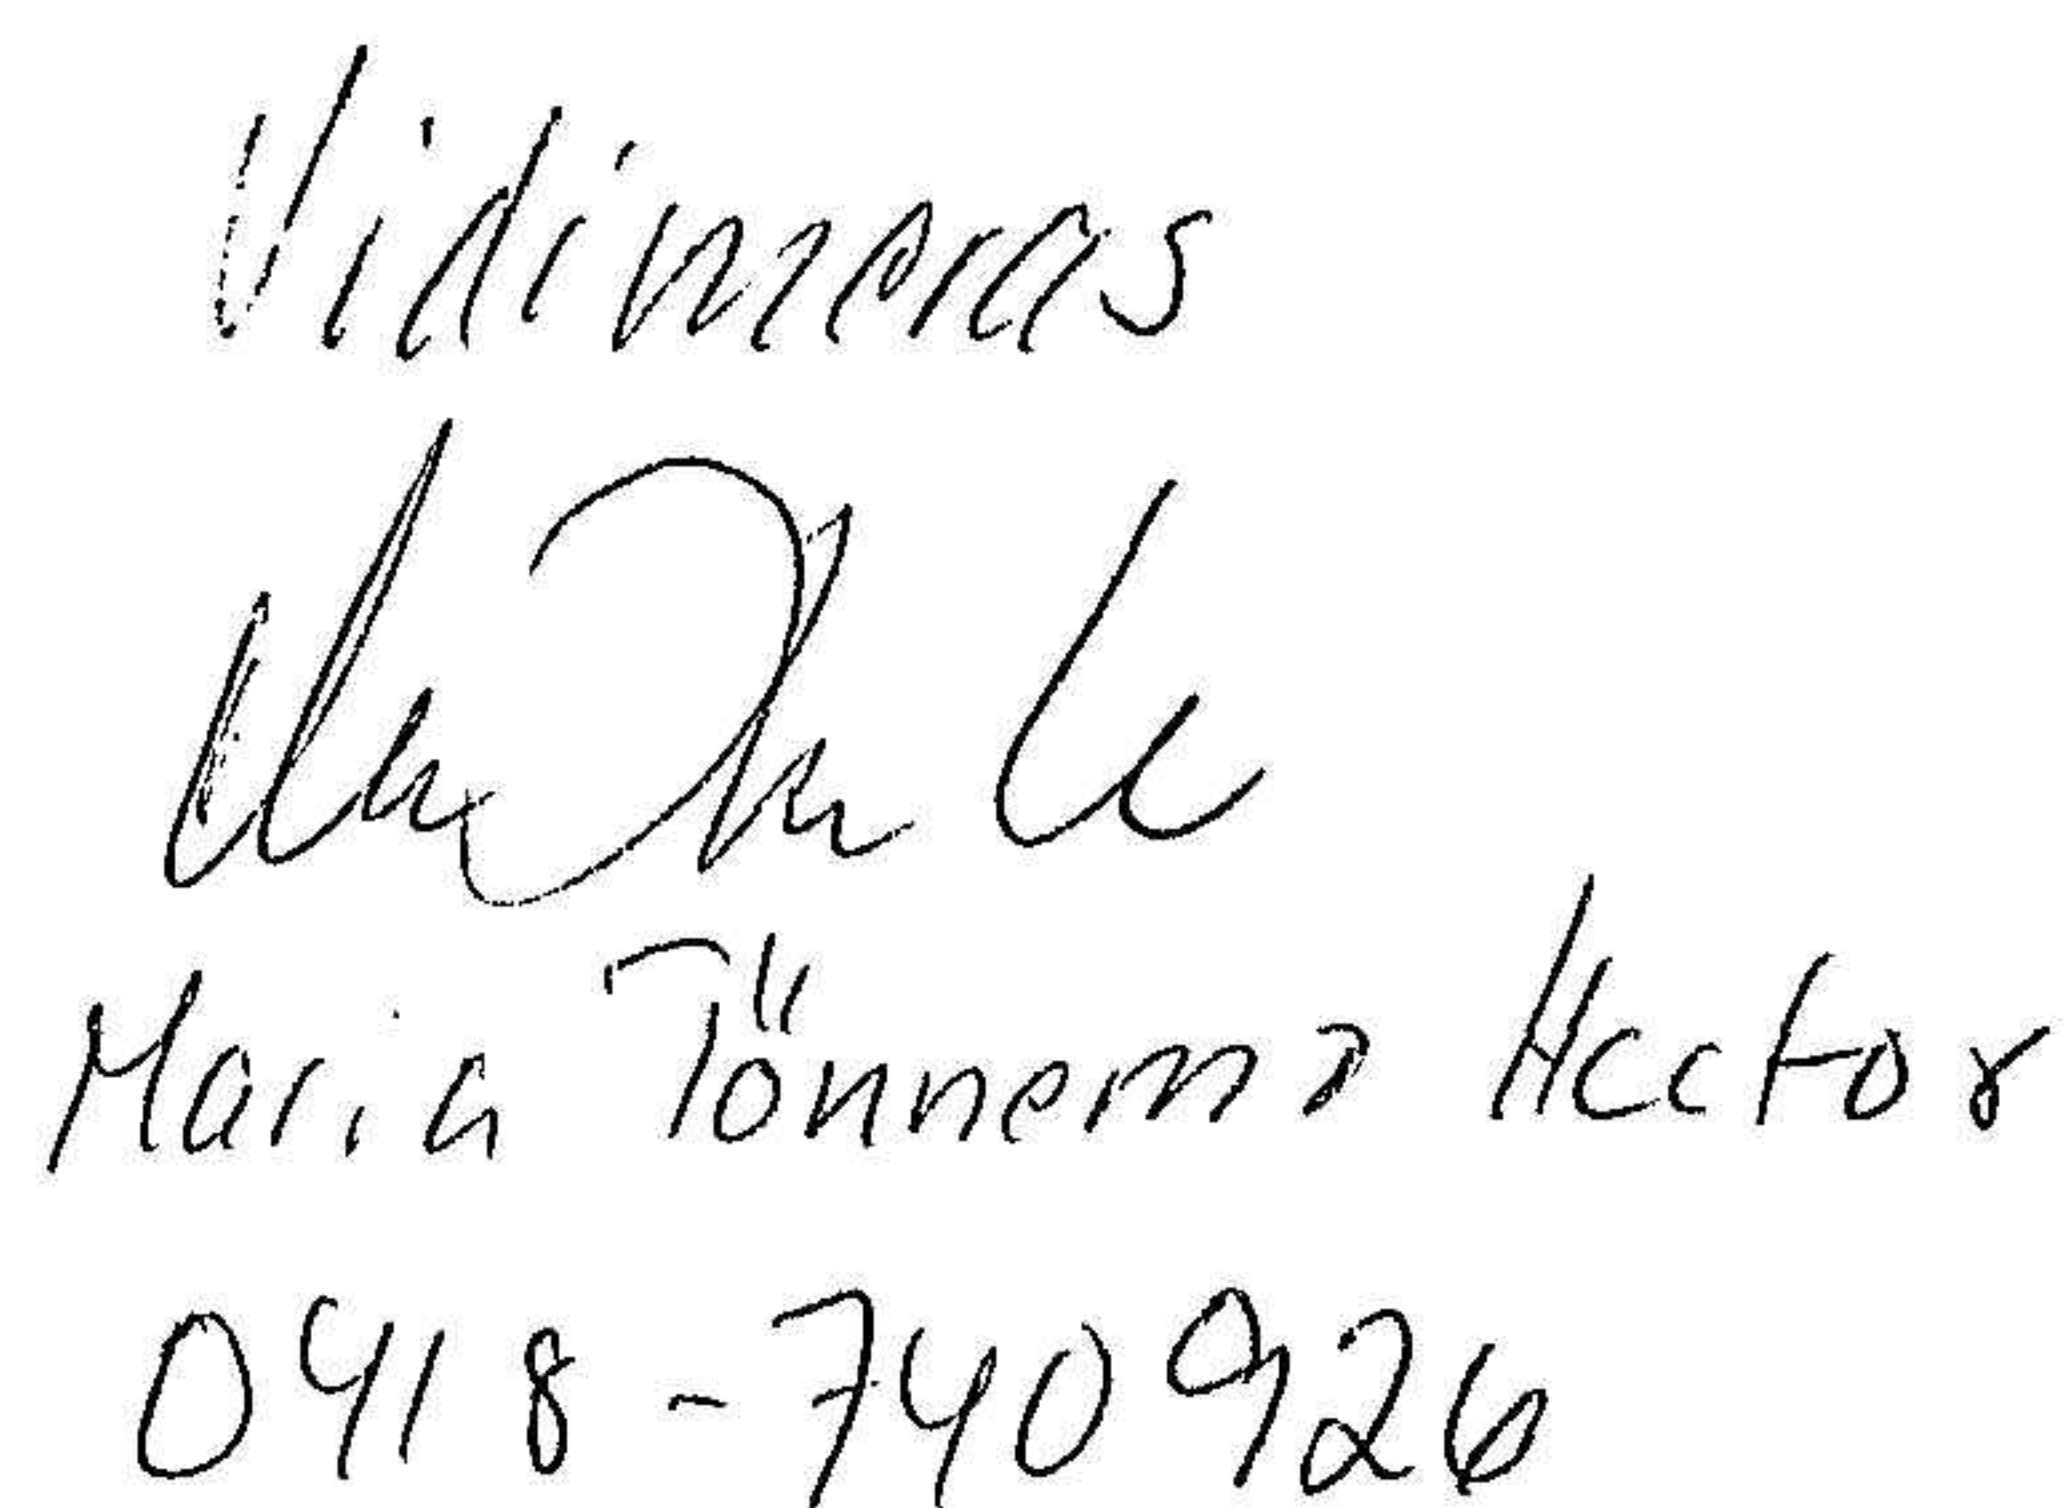 Vidimeras
Maria Tönnema Hector
0418-740926